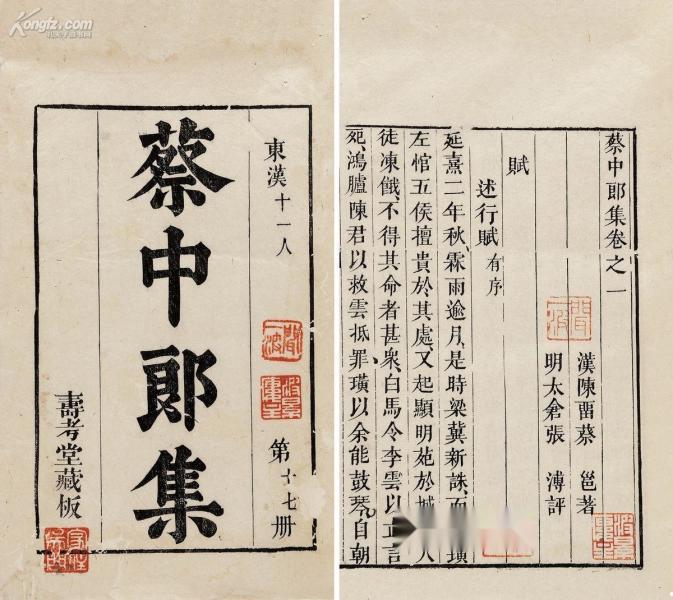 Kongfz.com
孔夫子旧书网
東漢十一人
第十七册
蔡中郎集
壽考堂藏板
蔡中郎集卷之一
漢陳畱蔡 邕著
明太倉張 溥評
賦
述行賦有序
延熹二年秋、霖雨逾月、是時梁冀新誅、而璜
左悺五侯擅貴於其處、又起顯明苑於城人
徒凍餓、不得其命者甚衆、白馬令李雲以言
死、鴻臚陳君以救雲抵罪、璜以余能鼓琴、自朝